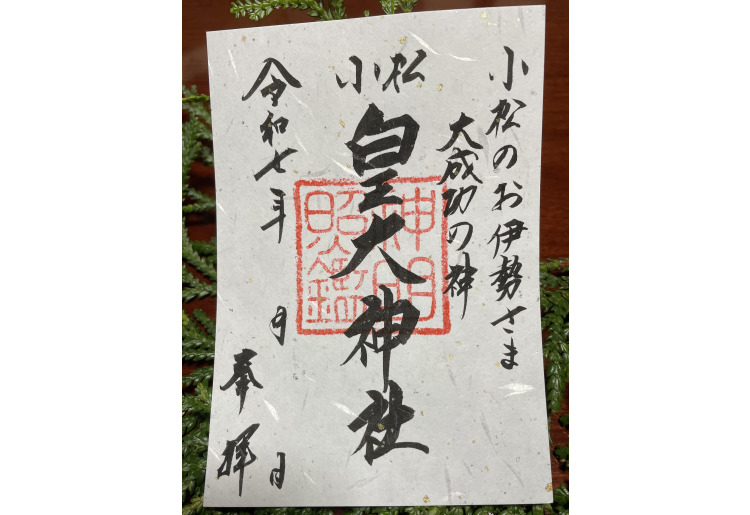 小松のお伊勢さま
大成功の神
小松
皇大神社
神明
照鑑
令和七年
月
日
奉拝